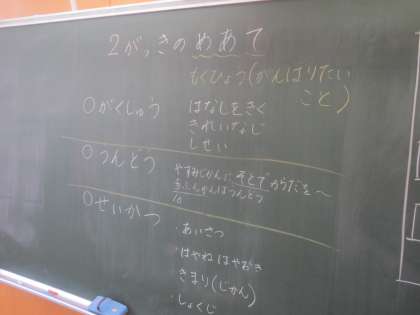 2がっきのめあて
もくひょう(がんばりたい
こと)
○がくしゅう
はなしをきく
きれいなじ
しせい
○うんどう
やすみじかんに、そとでからだを〜
10ふんかんはうんどう
○せいかつ
・あいさつ
・はやねはやおき
・きまり(じかん)
・しょくじ